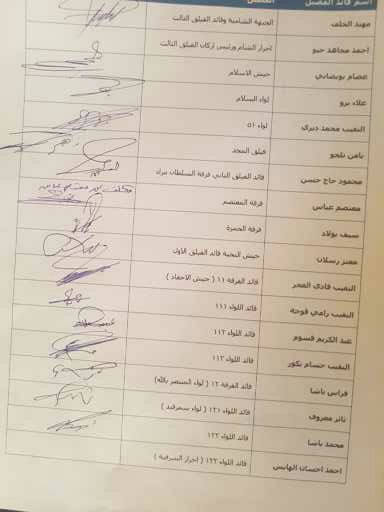 اسم قائد الفصيل الفصيل
مهند الخلف الجبهة الشامية وقائد الفيلق الثالث
احمد مجاهد حيو احرار الشام ورئيس اركان الفيلق الثالث
عصام بويضاني جيش الاسلام
علاء برو لواء السلام
النقيب محمد ديري لواء ٥١
يامن تلجو فيلق المجد
محمود حاج حسن قائد الفيلق الثاني فرقة السلطان مراد
معتصم عباس فرقة المعتصم
سيف بولاد فرقة الحمزة
معتز رسلان جيش النخبة قائد الفيلق الاول
النقيب فادي العمر قائد الفرقة ١١ ( جيش الاحفاد )
النقيب رامي قوجة قائد اللواء ١١١
عبد الكريم قسوم قائد اللواء ١١٢
النقيب حسام بكور قائد اللواء ١١٣
فراس باشا قائد الفرقة ١٢ ( لواء المنتصر بالله)
ثائر معروف قائد اللواء ١٢١ ( لواء سمرقند )
محمد باشا قائد اللواء ١٢٢
احمد احسان الهايس قائد اللواء ١٢٣ ( احرار الشرقية )